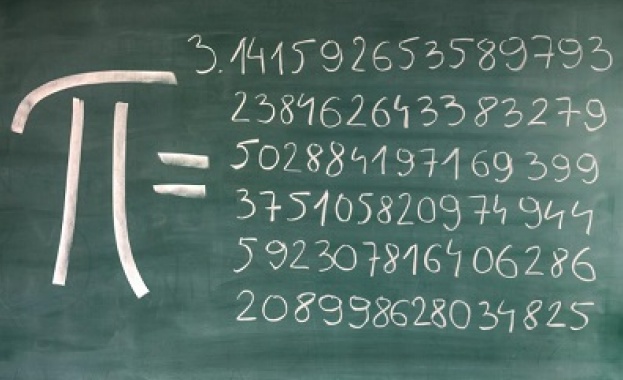 π = 3.141592653589793
238462643383279
502884197169399
375105820974944
592307816406286
208998628034825